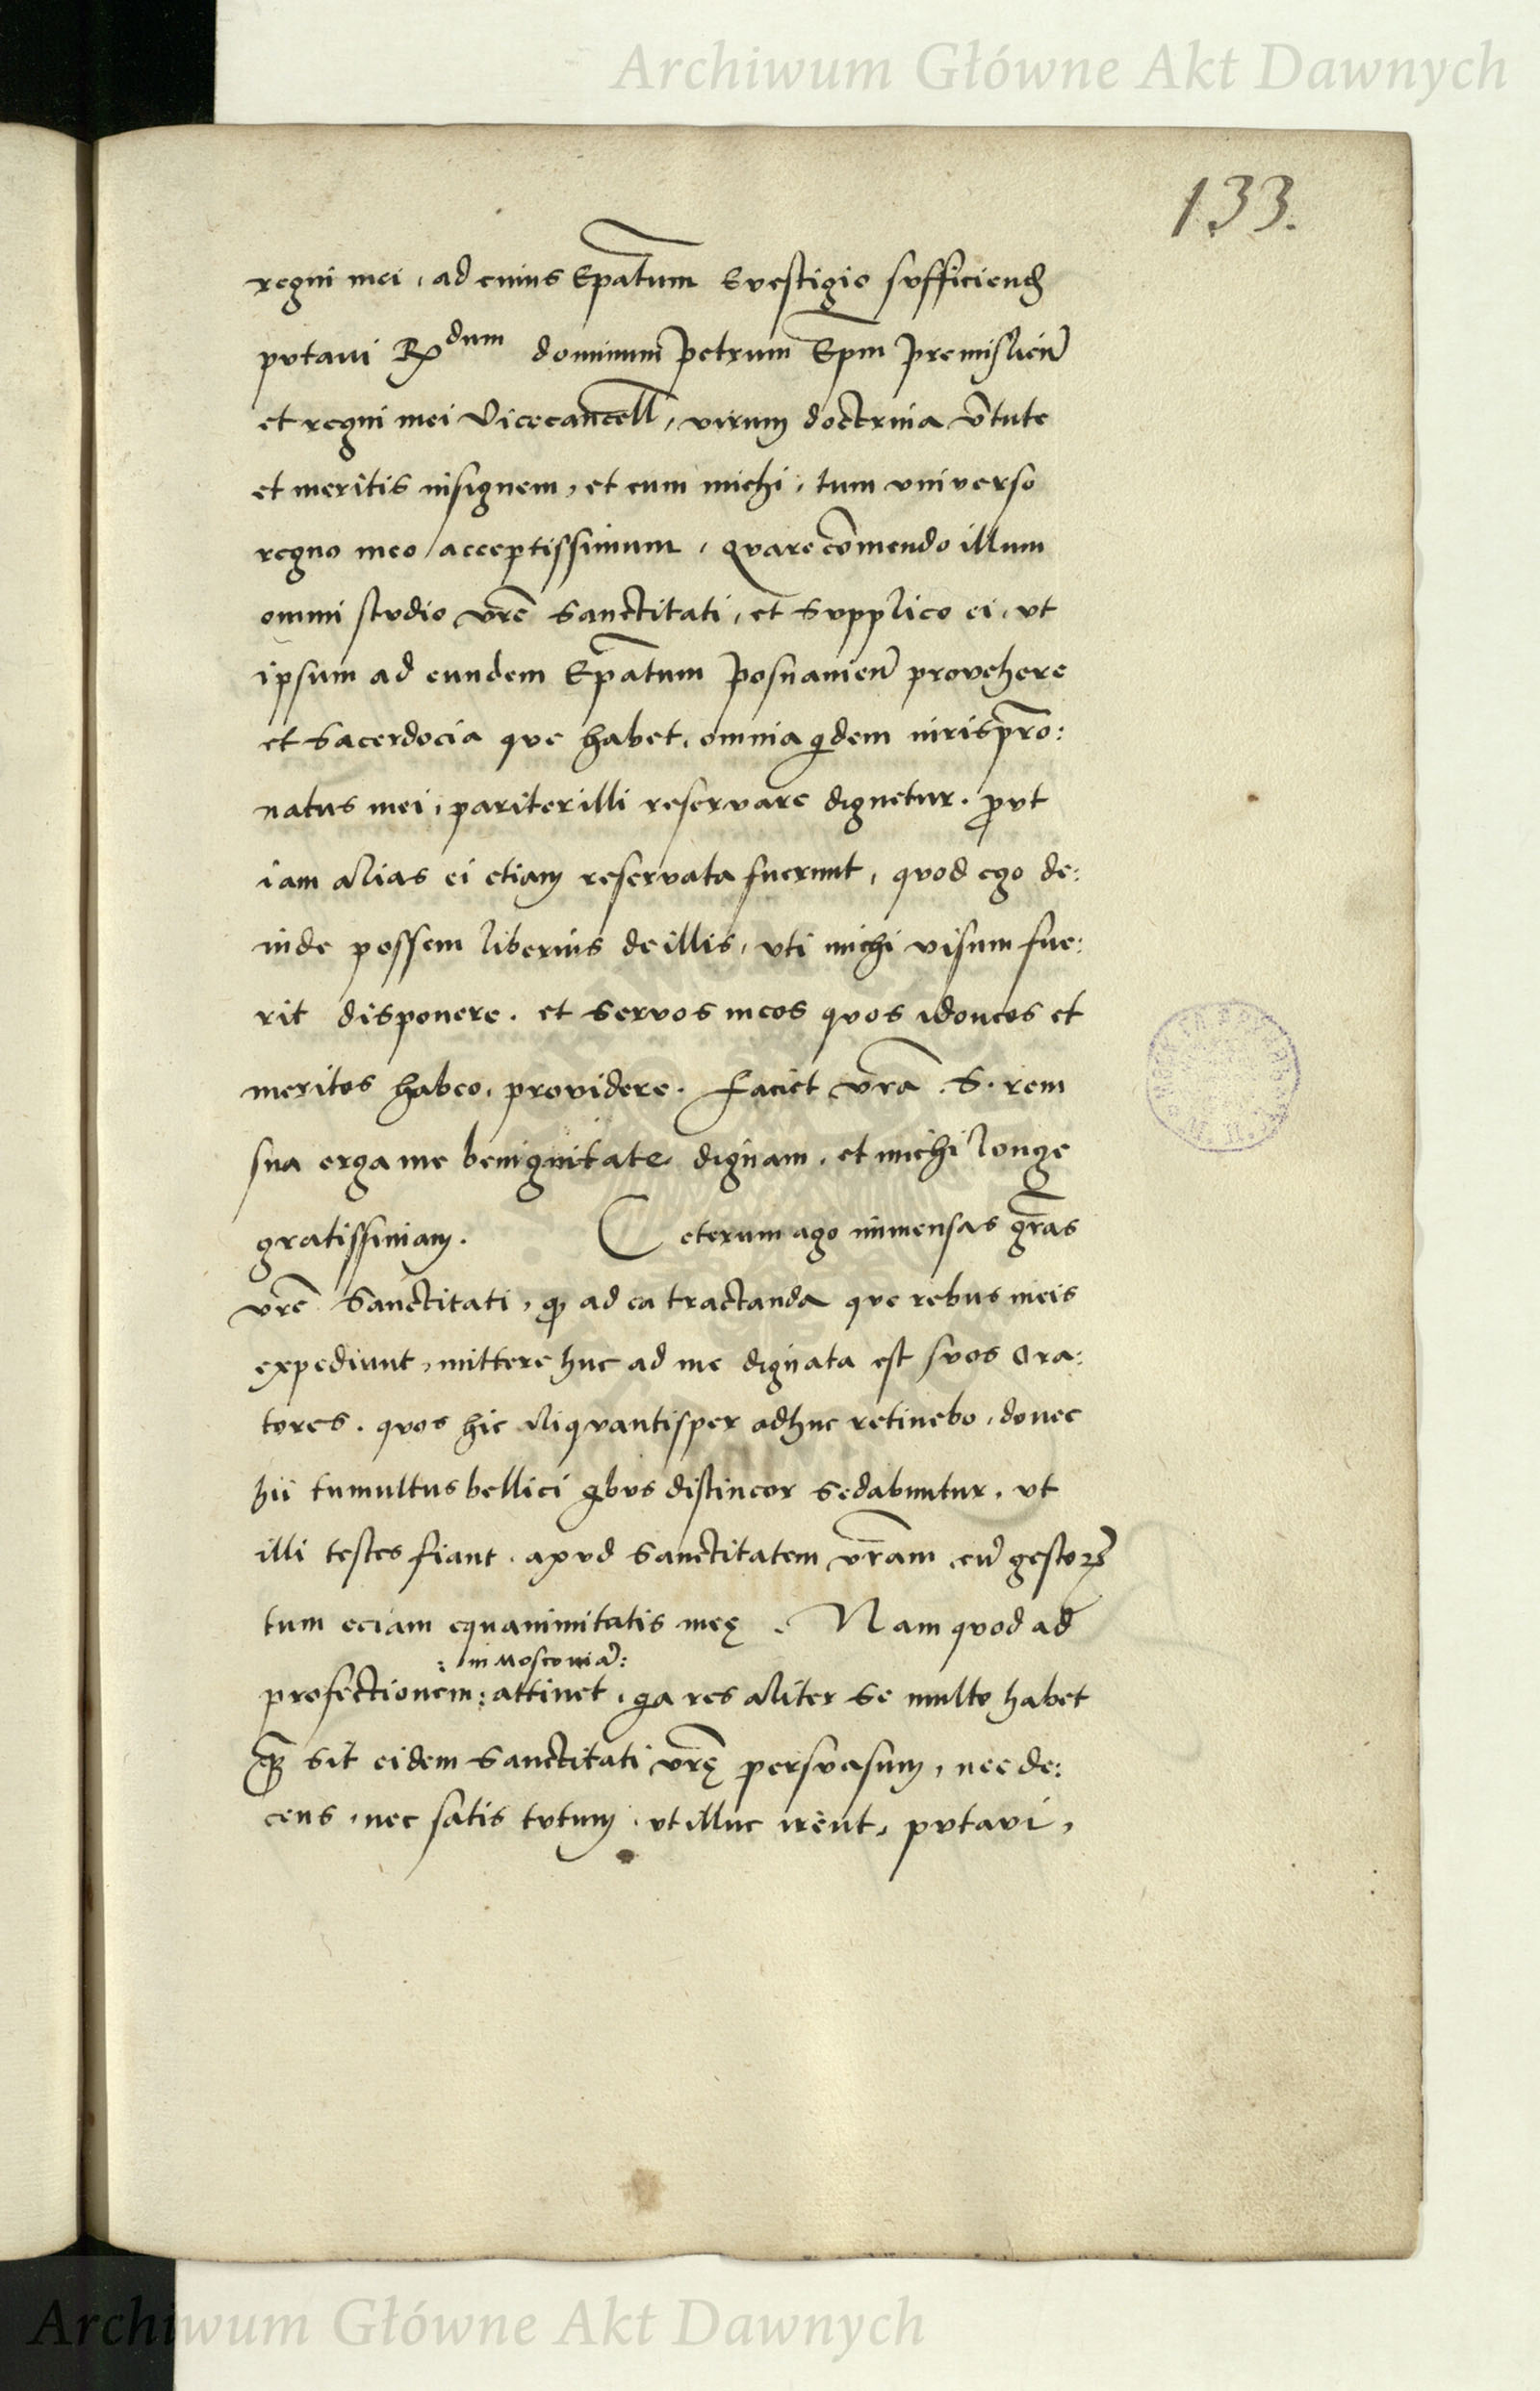 Archiwum Główne Akt Dawnych
133.
regni mei, ad cuius Ep̄atum e vestigio sufficiend
putavi R dum dominum Petrum Ep̄m Premislien̄
et regni mei Vicecancell, virum doctrina v̄tute
et meritis insignem, et cum michi, tum universo
regno meo acceptissimum, Quare com̄endo illum
omni studio vrē Sanctitati, et Supplico ei, ut
ipsum ad eundem Ep̄atum Posnanien̄ provehere
et Sacerdocia que habet, omnia qdem iuris pr̄o:
natus mei, pariter illi reservare dignetur. put
iam alias ei etiam reservata fuerunt, quod ego de:
inde possem liberius de illis, uti michi visum fue:
rit disponere. et servos meos quos idoneos et
meritos habeo, providere. Faciet vrā S. rem
sua erga me benignitate dignam, et michi longe
gratissimam. Ceterum ago immensas grās
vrē Sanctitati, q ad ea tractanda que rebus meis
expediunt, mittere huc ad me dignata est suos Ora:
tores. quos hic aliquantisper adhuc retinebo, donec
hii tumultus bellici qbus distineor sedabuntur, ut
illi testes fiant. apud Sanctitatem vrām cū gestoꝝ
tum eciam equanimitatis meę. Nam quod ad
: in Moscoviā:
profectionem: attinet, qa res aliter se multo habet
q̄ sit eidem Sanctitati vrę persuasum, nec de:
cens, nec satis tutum, ut illuc irent, putavi,
Archiwum Główne Akt Dawnych